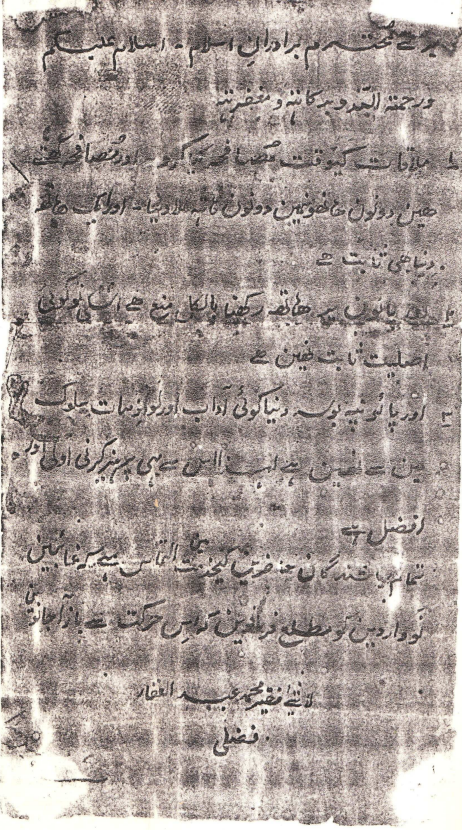 میرے محترم برادران اسلام - اسلام علیکم
ورحمتہ اللہ وبرکاتہ ومغفرتہ
۱ ملاقات کیوقت مصافحہ کرو - اور مصافحہ کہتے
ھین دونون ھاتھونمین دونون ھاتھ ملا دنیا - اور ایک ھاتھ
دنیا ھی ثابت ھے
۲ پانون پر ھاتھ رکھنا بالکل منع ھے اسکی تو کوئی
اصلیت ثابت نھین ھے
۳ اور پائو نپہ بوسہ دنیا کوئی آداب اور لوازمات سلوک
مین سے نھین ہے لہذا اس سے بھی پرہیز کرنی اولیٰ اور
افضل ہے
تمام باشندگان کیخدمت التماس ہے کہ
نو واردین کو مطلع فرمادین کہ اس حرکت سے باز آجانا
فقیر محمد عبد الغفار
فضلی